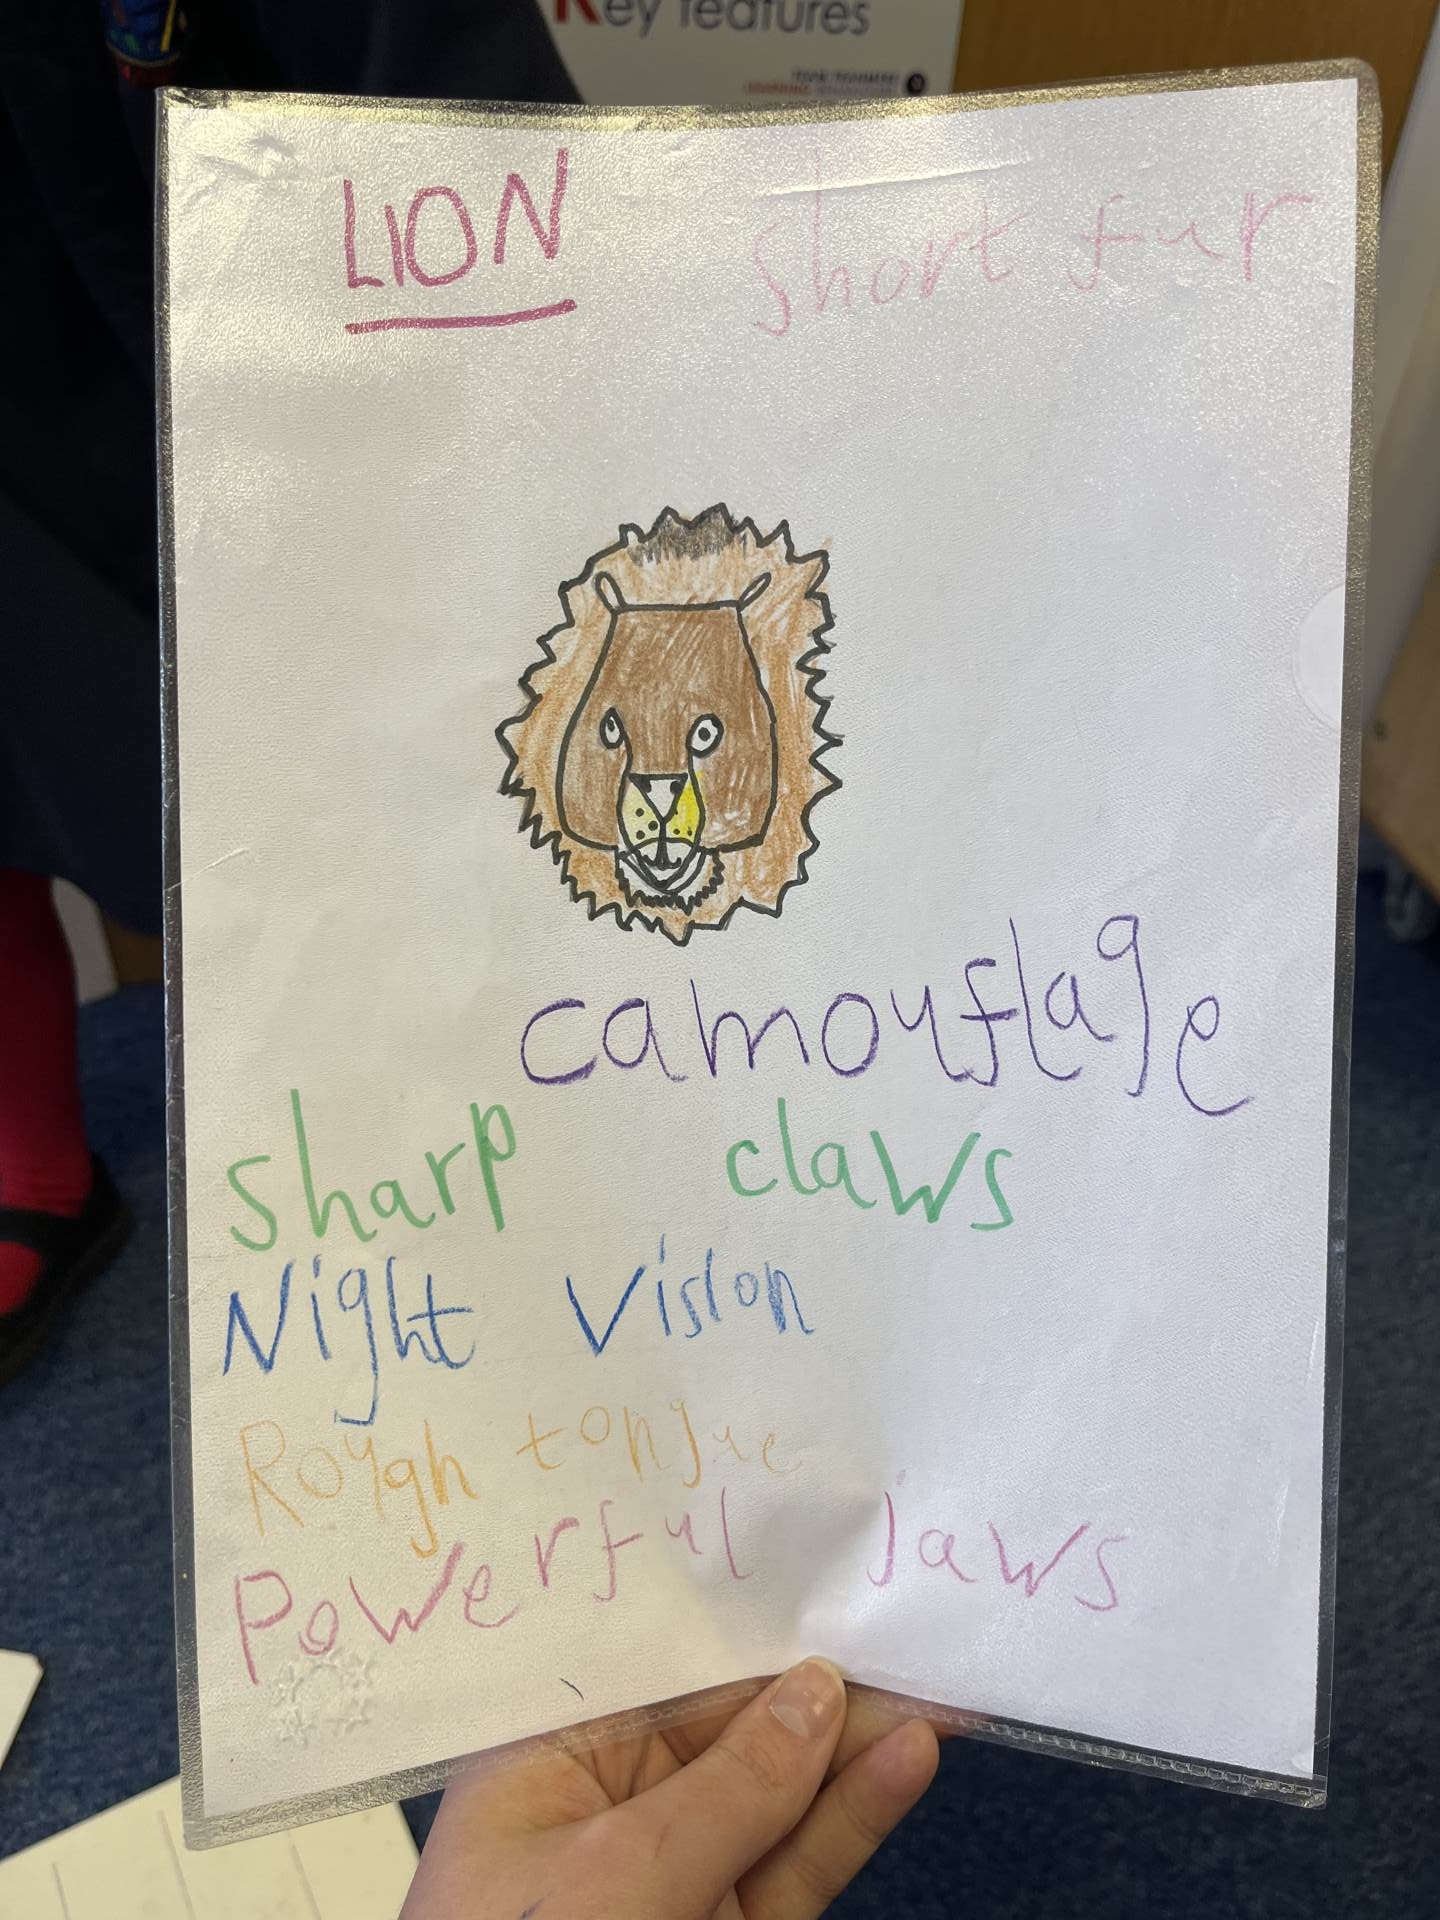 Key features
LION
short fur
camouflage
sharp claws
Night Vision
Rough tongue
Powerful Jaws